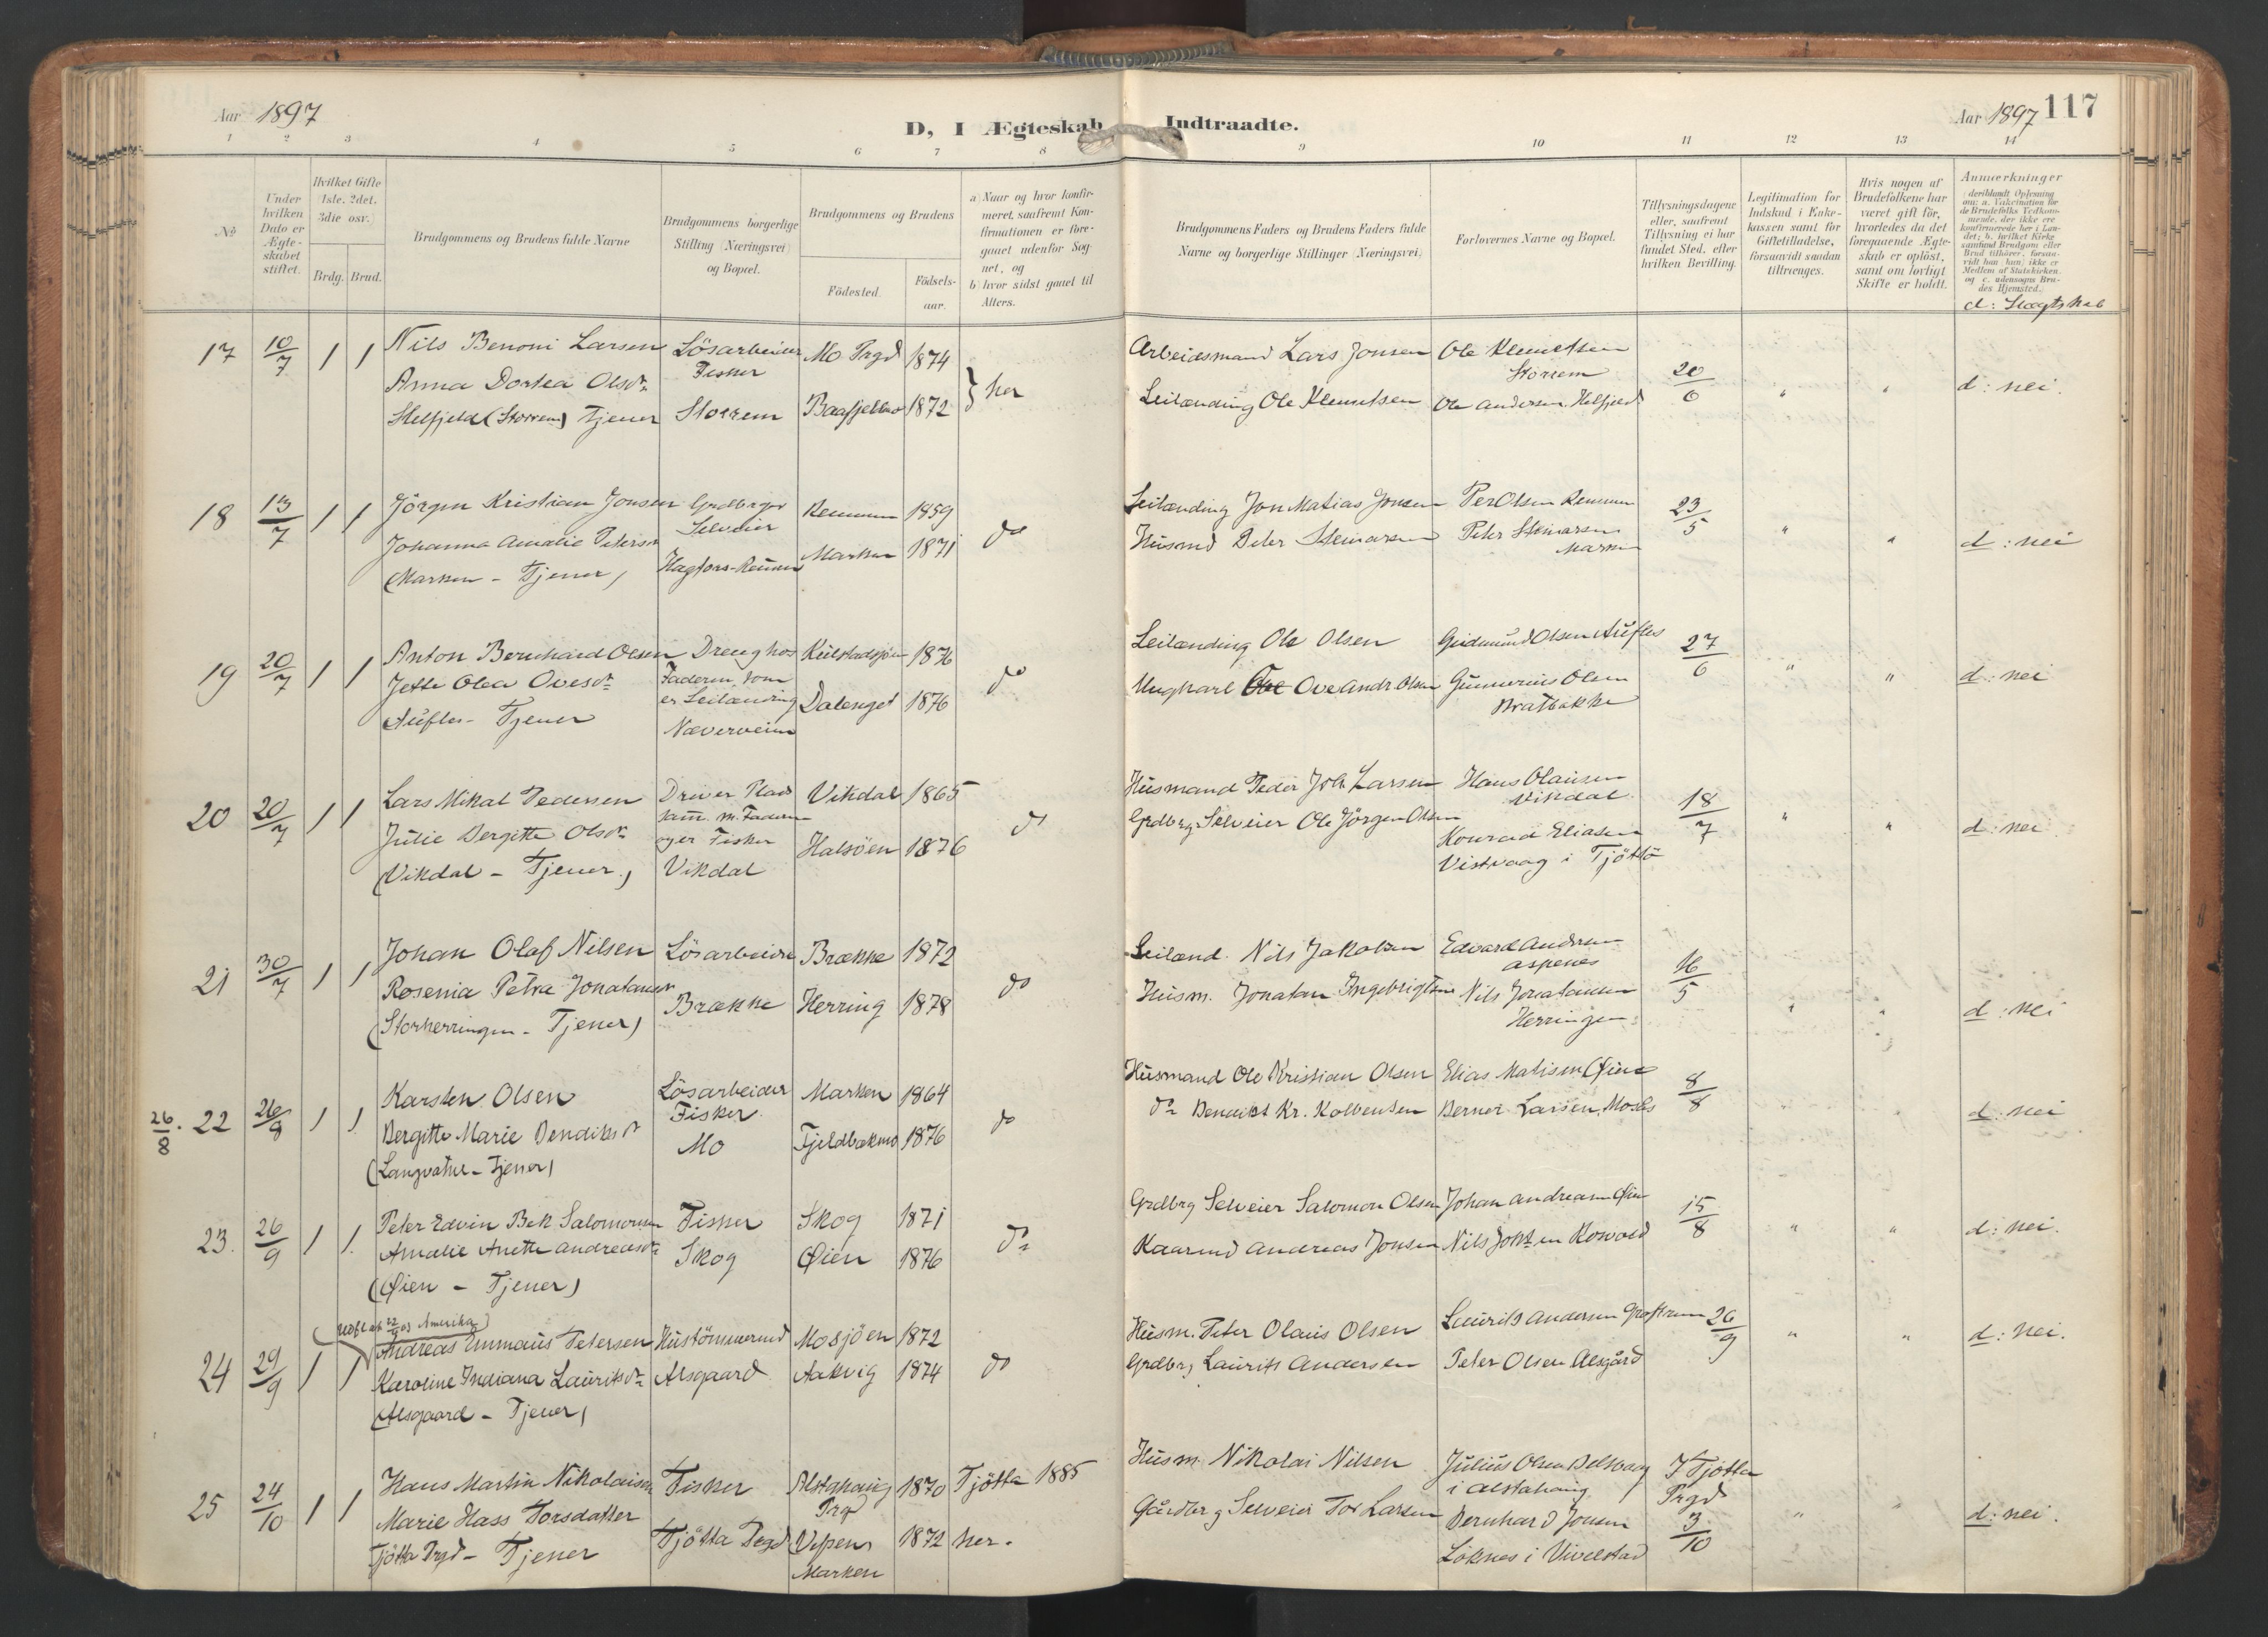 Aar 1897
D, I Ægteskab Indtraadte.
Aar 1897 117
1 2 3 4 5 6 7 8 9 10 11 12 13 14
No
Under hvilken Dato er Ægteskabet stiftet.
Hvilket Gifte 1ste. 2det. 3die osv.)
Brdg. Brud.
Brudgommens og Brudens fulde Navne
Brudgommens borgerlige Stilling (Næringsvei) og Bopæl.
Brudgommens og Brudens
Födested.
Födsels-aar.
a) Naar og hvor konfirmeret, saafremt Konfirmationen er foregaaet udenfor Sognet, og
b) hvor sidst gaaet til Alters.
Brudgommens Faders og Brudens Faders fulde Navne og borgerlige Stillinger (Næringsvei)
Forlovernes Navne og Bopæl.
Tillysningsdagene eller, saafremt Tillysning ei har fundet Sted, efter hvilken Bevilling.
Legitimation for Indskud i Enkekassen samt for Giftetilladelse, forsaavidt saadan tiltrænges.
Hvis nogen af Brudefolkene har været gift för, hvorledes da det foregaaende Ægteskab er oplöst, samt om lovligt Skifte er holdt.
Anmærkninger
(deriblandt Oplysning om: a. Vakcination for de Brudefolks Vedkommende, der ikke ere konfirmerede her i Landet; b. hvilket Kirkesamfund Brudgom eller Brud tilhörer, forsaavidt han (hun) ikke er Medlem af Statskirken, og c. udensogns Brudes Hjemsted.
d: Slægtskab
17 10/7 1 1 Nils Benoni Larsen Lösarbeider Mo Prgd 1874 Arbeidsmand Lars Jonsen Ole Klemetsen
Fisker Storrem 20/6
Anna Dortea Olsdr } her d: nei.
Helfjeld (Storrem) Tjener Storrem Baafjelmo 1872 Leilænding Ole Klemetsen Ole Andersen Helfjeld
18 13/7 1 1 Jörgen Kristian Jonsen Grdbruger Remmen 1859 do Leilænding Jon Matias Jonsen Per Olsen Remmen 23/5
Selveier
Johanna Amalie Petersdr Marken 1871 Husmd Peter Steinarsen Peter Steinarsen d: nei
(Marken - Tjener) Hagfors-Remmen Marken
19 20/7 1 1 Anton Bernhard Olsen Dreng hos Kulstadsjöen 1876 do Leilænding Ole Olsen Gudmund Olsen Aufles 27/6
Jette Olea Ovesdr Faderen, som Ungkarl Ove Andr. Olsen Gunnerius Olsen d: nei
er Leilænding Dalenget 1876 Bratbakke
Aufles - Tjener Næverveien
20 20/7 1 1 Lars Mikal Pedersen Driver Plads Vikdal 1865 do Husmand Peder Joh. Larsen Hans Olausen
sam. m. Faderen Vikdal 18/7
Julie Bergitte Olsdr og er Fisker Halsöen 1876 Grdbrg Selveier Ole Jörgen Olsen Konrad Eliasen d: nei
(Vikdal - Tjener.) Vikdal Vistvaag i Tjöttö
21 30/7 1 1 Johan Olaf Nilsen Lösarbeider Brække 1872 do Leilænd. Nils Jakobsen Edvard Andersen
Aspenes 16/5
Rosenia Petra Jonatansdr Brække Herring 1878 Husm. Jonatan Ingebrigtsen Nils Jonatansen
(Storherringen - Tjener) Herringen d: nei
26/8. 22 26/8 1 1 Karsten Olsen Lösarbeider Marken 1864 do Husmand Ole Kristian Olsen Elias Matisen Öien 8/8
Fisker.
Bergitte Marie Bendiksdr Mo Fjeldbækmo 1876 do Bendikt Kr. Kolbensen Berner Larsen, Mosås d: nei
(Langvatne - Tjener)
23. 26/9 1 1. Peter Edvin Bek Salomonsen Fisker Skog 1871 do Grdbrg Selveier Salomon Olsen Johan Andreasen Øien 15/8
Amalie Anette Andreasdr Skog Øien 1876 Kaarmd Andreas Jonsen Nils Johsen Kovold d: nei.
(Øien - Tjener)
Amerika)
24 29/9 1 1 Andreas Emmaus Petersen Hustömmermd Mosjöen 1872 do Husm. Peter Olaus Olsen Laurits Andersen 26/9
Karoline Indiana Lauritsdr Alsgaard Aakvig 1874 Grdbrg Laurits Andersen Peter Olsen Alsgård d: nei.
(Alsgaard - Tjener)
25 24/10 1 1 Hans Martin Nikolaisen Fisker Alstahaug Prgd 1870 Tjötta 1885 Husm. Nikolai Nilsen Julius Olsen Belsvaag i Alstahaug I Tjötta Prgd 3/10
Marie Hass Torsdatter Tjötta Prgd Vefsen Marken 1872 her. Gårdbrg Selveier Tor Larsen Bernhard Jonsen d: nei.
Tjötta Prgd - Tjener Löknes i Vivelstad